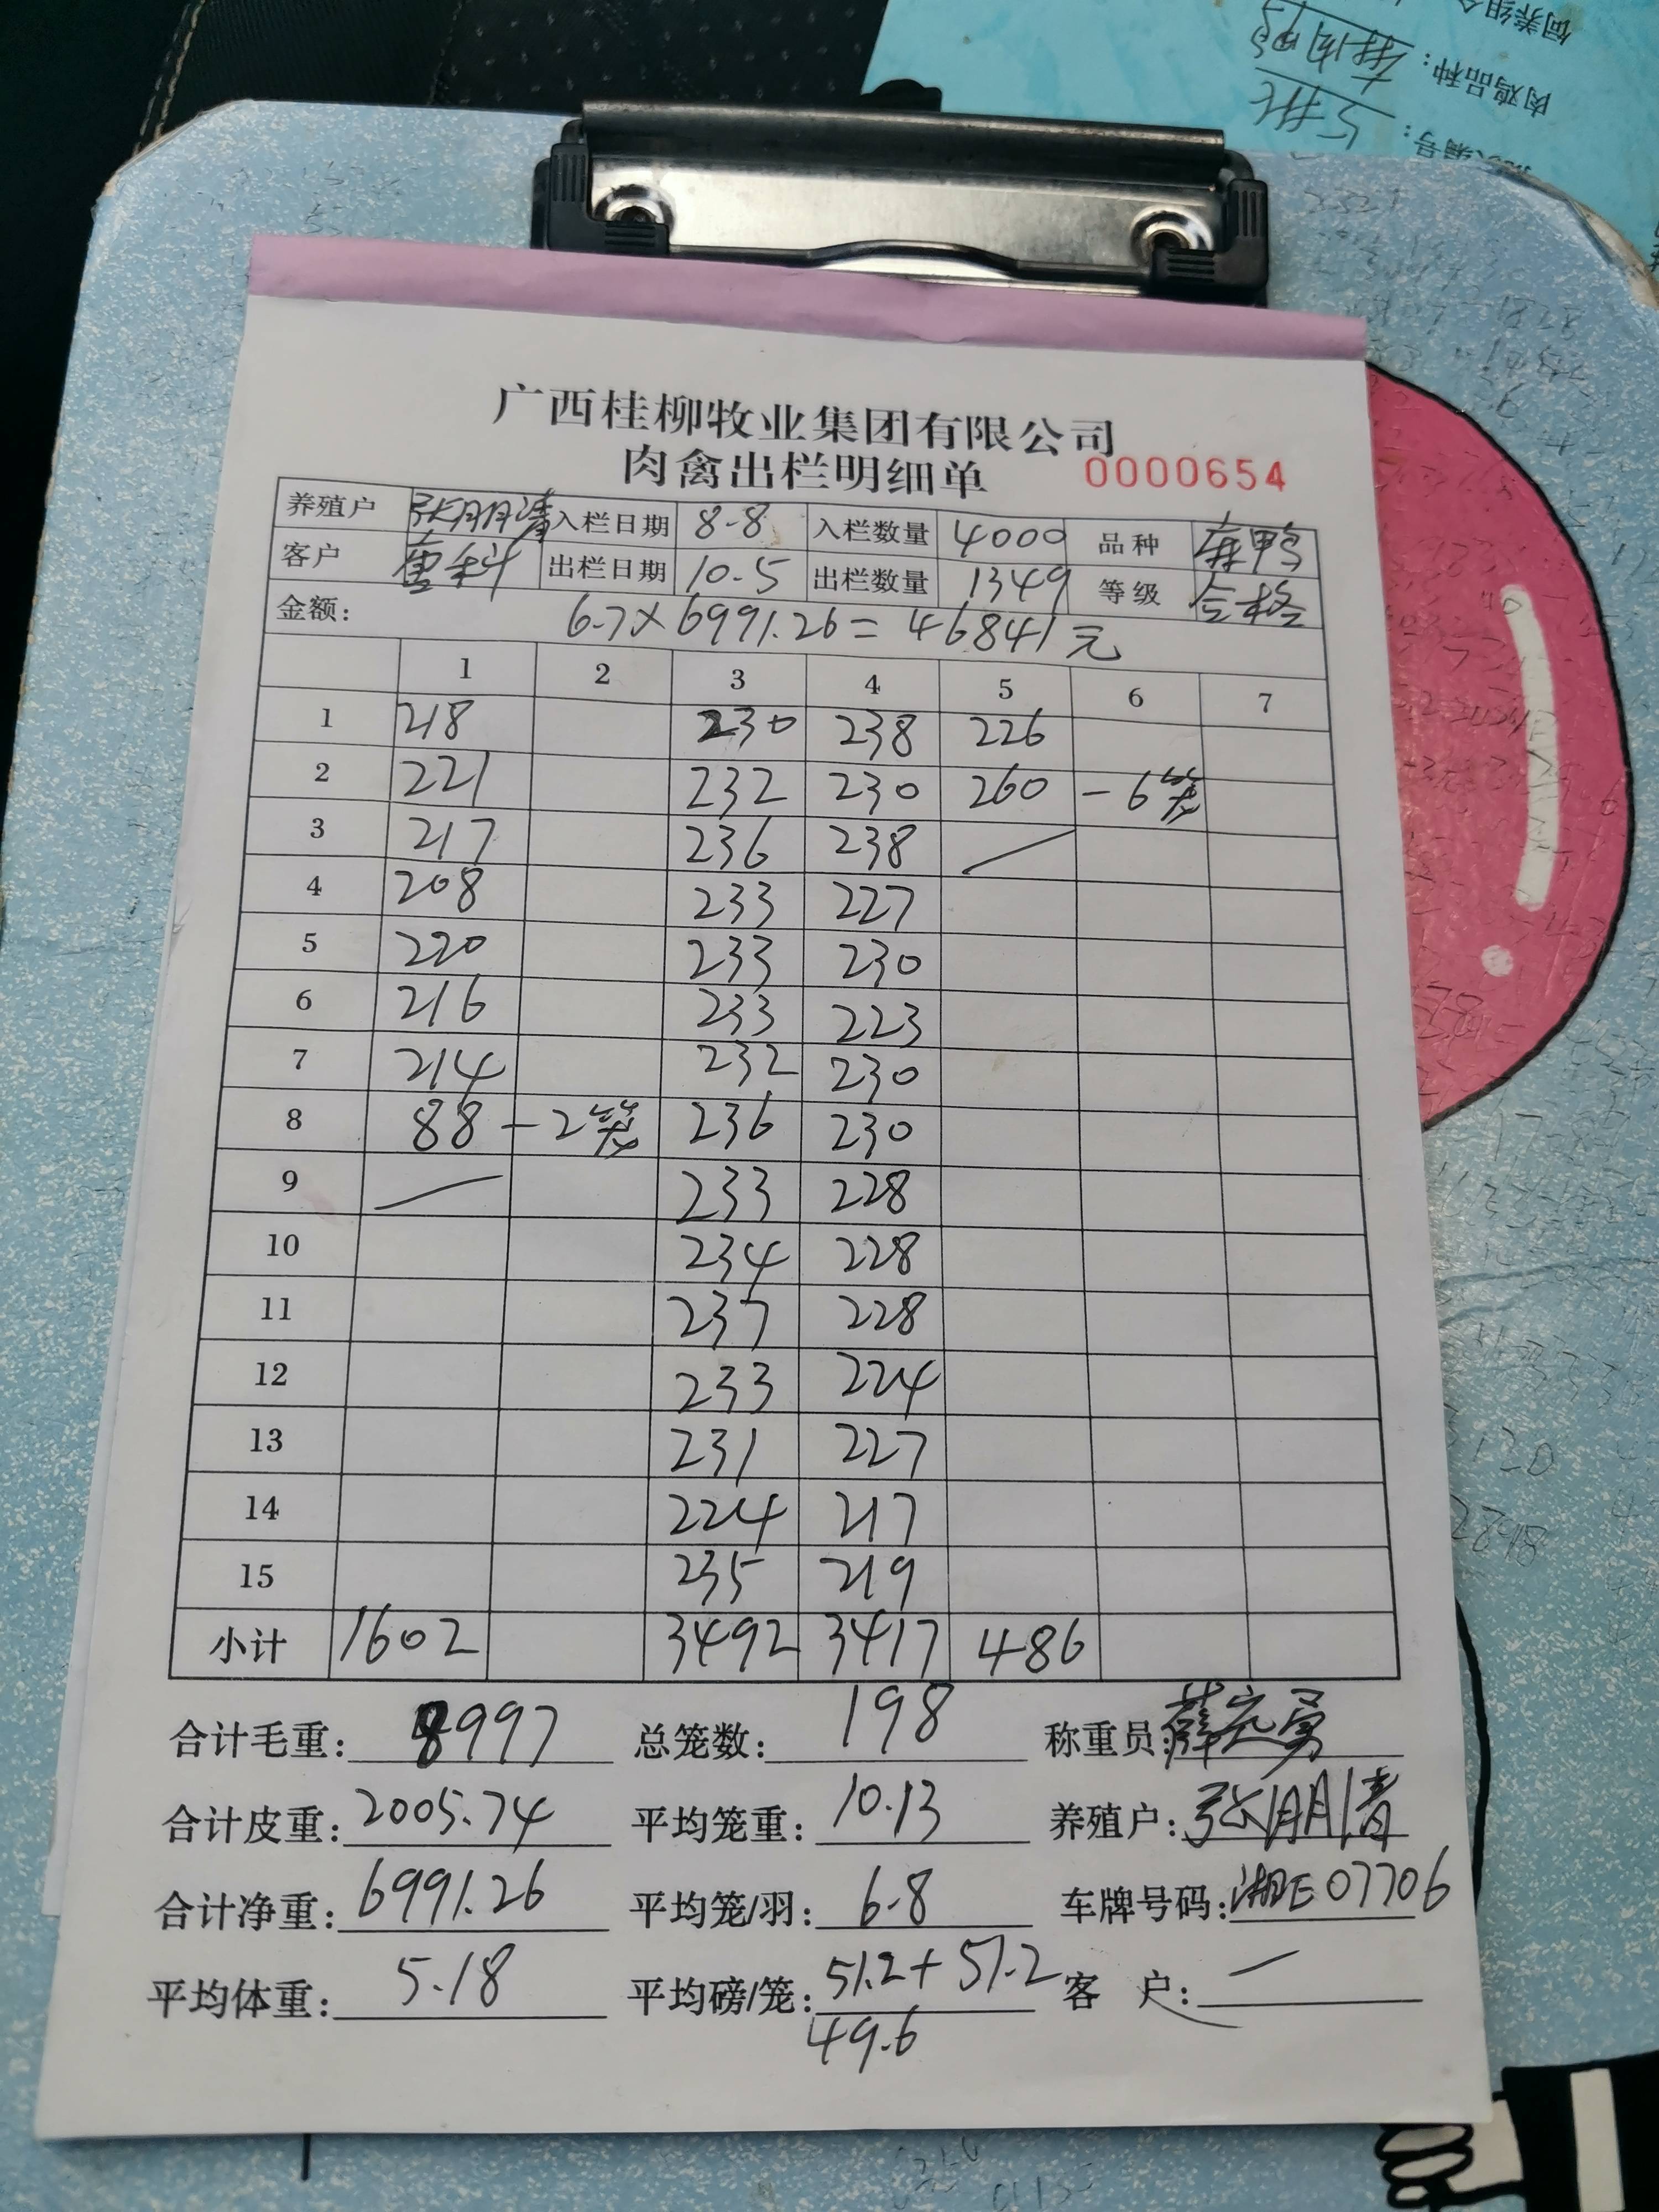 肉鸡品种：麻肉鸭
广西桂柳牧业集团有限公司
肉禽出栏明细单 0000654
养殖户 张朋清 入栏日期 8-8 入栏数量 4000 品种 麻鸭
客户 唐科 出栏日期 10.5 出栏数量 1349 等级 合格
金额： 6.7×6991.26=46841元
1 2 3 4 5 6 7
1 218 230 238 226
2 221 232 230 260 -6笼
3 217 236 238
4 208 233 227
5 220 233 230
6 216 233 223
7 214 232 230
8 88 -2笼 236 230
9 233 228
10 234 228
11 237 228
12 233 224
13 231 227
14 224 217
15 235 219
小计 1602 3492 3417 486
合计毛重：8997 总笼数：198 称重员：薛宏勇
合计皮重：2005.74 平均笼重：10.13 养殖户：张朋清
合计净重：6991.26 平均笼/羽：6.8 车牌号码：湘E07706
平均体重：5.18 平均磅/笼：51.2+51.2 客 户：
49.6